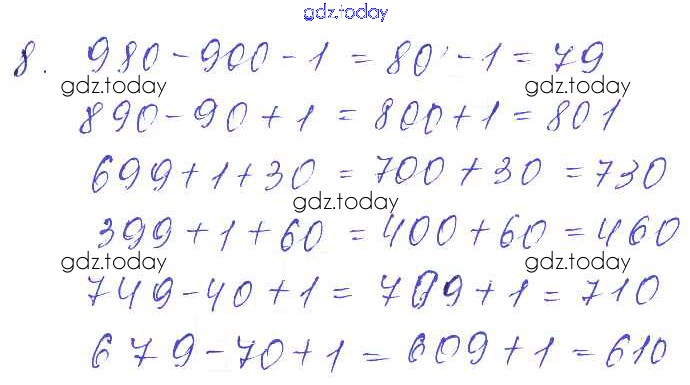 gdz.today
8. 980 - 900 - 1 = 80 - 1 = 79
gdz.today gdz.today
890 - 90 + 1 = 800 + 1 = 801
699 + 1 + 30 = 700 + 30 = 730
gdz.today
399 + 1 + 60 = 400 + 60 = 460
gdz.today gdz.today
749 - 40 + 1 = 709 + 1 = 710
679 - 70 + 1 = 609 + 1 = 610